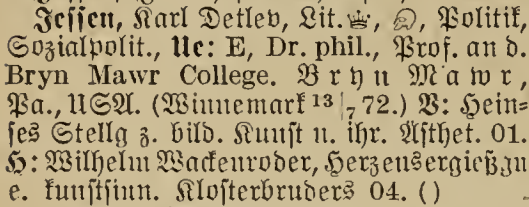 Jessen, Karl Detlev, Lit. Politik,
Sozialpolit., Ue: E, Dr. phil., Prof. an d.
Bryn Mawr College. Bryn Mawr,
Pa., USA. (Winnemark 13/7 72.) V: Hein-
ses Stellg z. bild. Kunst u. ihr. Ästhet. 01.
H: Wilhelm Wackenroder, Herzensergießgn
e. kunstsinn. Klosterbruders 04. ()